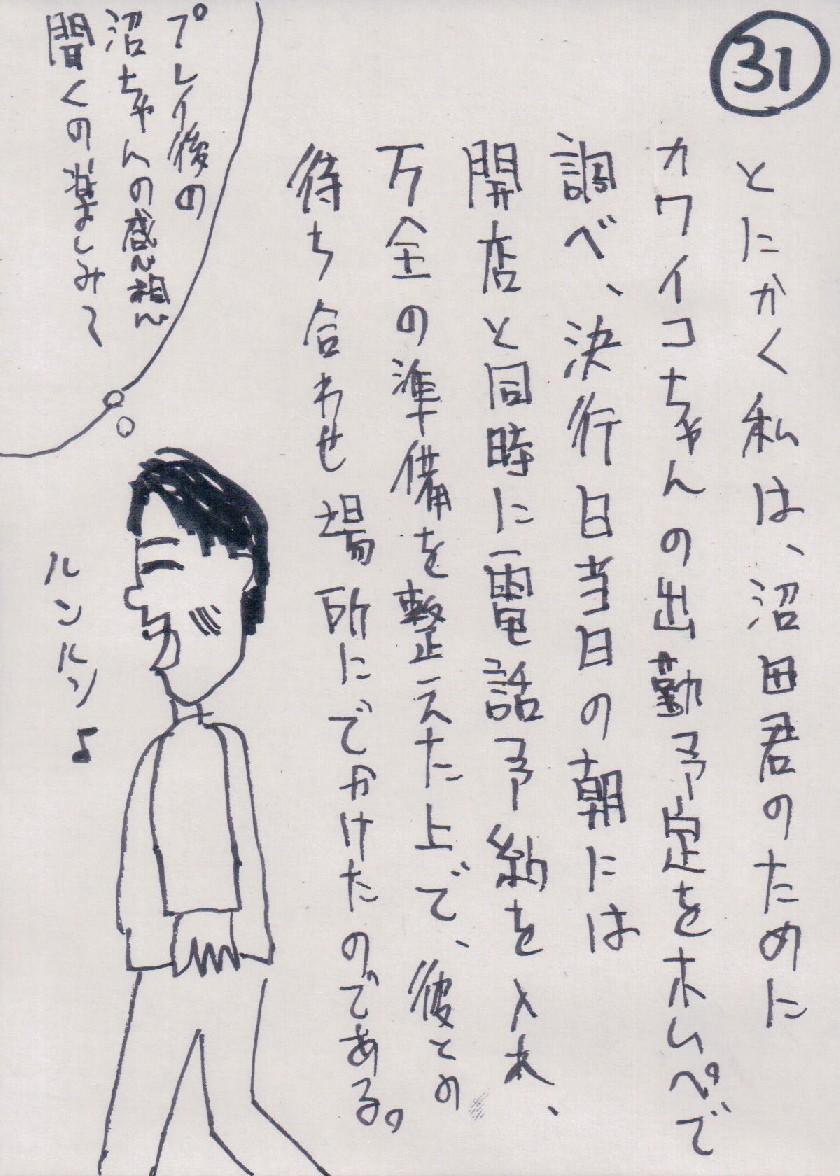 31
とにかく私は、沼田君のために
カワイコちゃんの出勤予定をホムペで
調べ、決行日当日の朝には
開店と同時に電話予約を入れ、
万全の準備を整えた上で、彼との
待ち合わせ場所にでかけたのである。
プレイ後の
沼ちゃんの感想
聞くの楽しみ〜
ルンルン♪